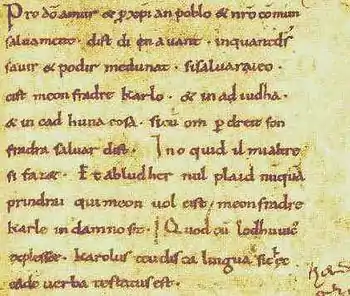 Pro dō amur & p xp̄ian poblo & nr̄o cōmun
saluament · dist di en auant · inquantdş
sauir & podir medunat · sisaluaraieo ·
cist meon fradre karlo · & in ad iudha ·
& in cad huna cosa · sicū om p dreit son
fradra saluar dist · Ino quid il mi altre
si faz& · Et ab ludher nul plaid nūquā
prindrai qui meon uol cist · meon fradre
karle in damno sit · Quod cū lodhuuic
explesset · karolus teudisca lingua sic ec
eadē uerba testatus est ·